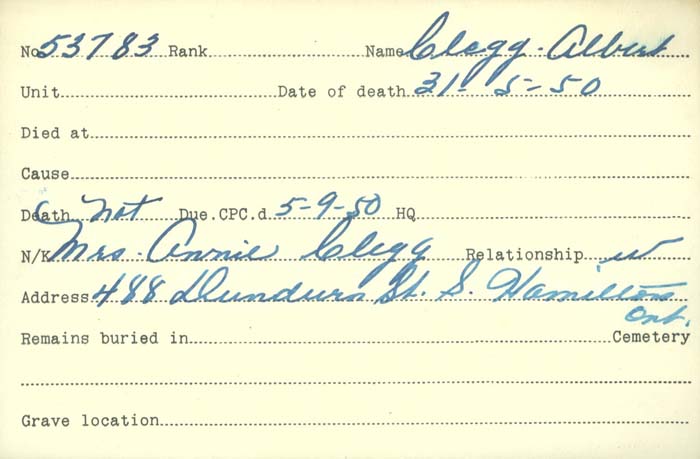 No. 53783 Rank Name Clegg - Albert
Unit Date of death 31-5-50
Died at
Cause
Death Not Due. CPC.d 5-9-50 HQ
N/K Mrs. Annie Clegg Relationship w
Address 488 Dundurn St. S. Hamilton
Ont.
Remains buried in Cemetery
Grave location